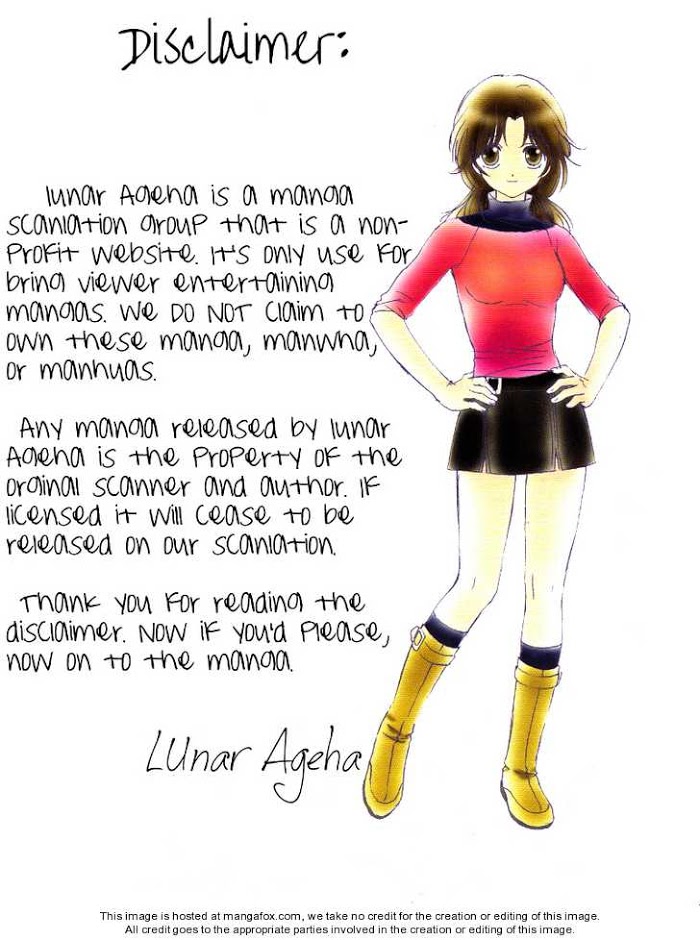 Disclaimer:
Lunar Ageha is a manga
scanlation group that is a non-
profit website. It's only use for
bring viewer entertaining
mangas. We DO NOT claim to
own these manga, manwha,
or manhuas.
Any manga released by Lunar
Ageha is the property of the
orginal scanner and author. If
licensed it will cease to be
released on our scanlation.
Thank you for reading the
disclaimer. Now if you'd please,
now on to the manga.
Lunar Ageha
This image is hosted at mangafox.com, we take no credit for the creation or editing of this image.
All credit goes to the appropriate parties involved in the creation or editing of this image.